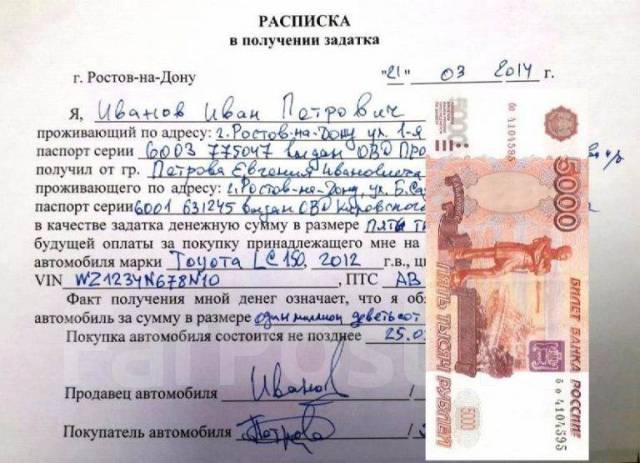 РАСПИСКА
в получении задатка
г. Ростов-на-Дону "21" 03 2014 г.
Я, Иванов Иван Петрович
проживающий по адресу: г. Ростов-на-Дону ул. 1-я
паспорт серии 6003 775047 выдан ОВД ПРО
получил от гр. Петрова Евгения Ивановича
проживающего по адресу: г. Ростов-на-Дону, ул. Б.Са
паспорт серии 6001 631245 выдан ОВД Кировского
в качестве задатка денежную сумму в размере пять т
будущей оплаты за покупку принадлежащего мне на
автомобиля марки Toyota LC 150, 2012 г.в., ш
VIN WZ1234N678N10, ПТС АВ
Факт получения мной денег означает, что я об
автомобиль за сумму в размере один миллион девятьсот
Покупка автомобиля состоится не позднее 25.0
Продавец автомобиля Иванов /
Покупатель автомобиля Петров /
5000
бо 4104595
5000
ПЯТЬ ТЫСЯЧ РУБЛЕЙ
БИЛЕТ БАНКА РОССИИ
5000
бо 4104595